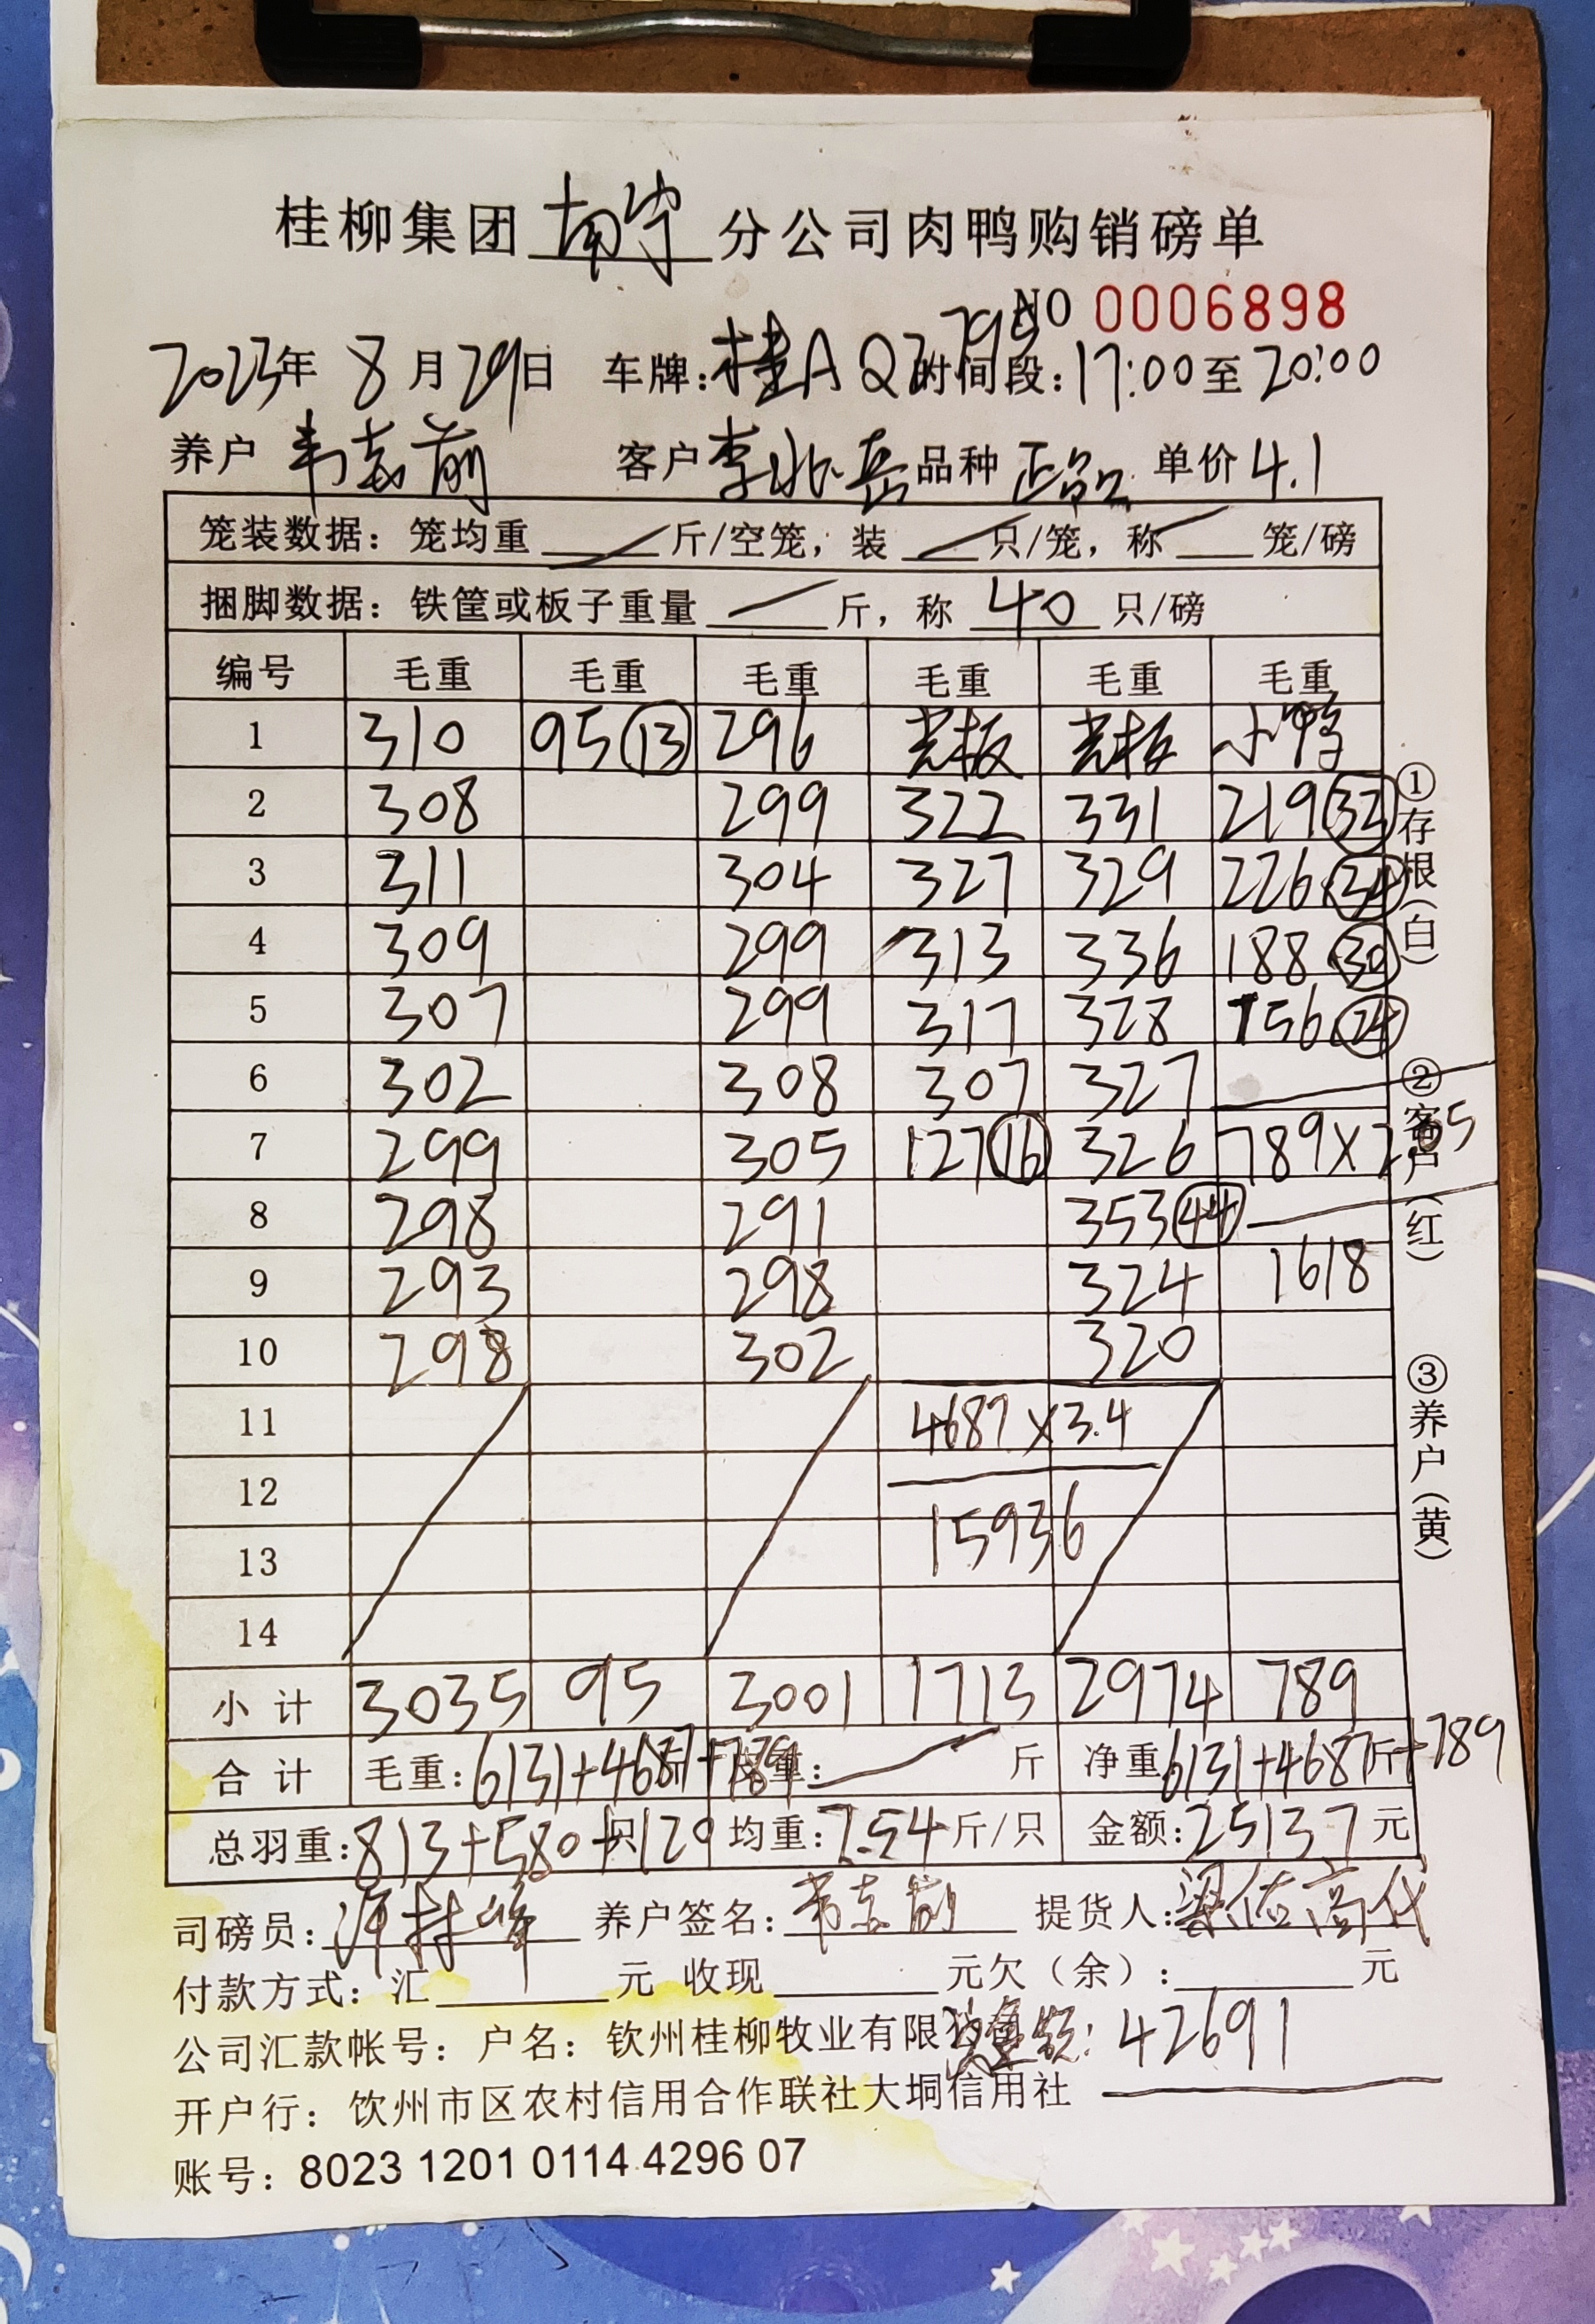 桂柳集团 南宁 分公司肉鸭购销磅单
NO 0006898
2023年 8月29日 车牌:桂AQ2795 时间段:17:00至20:00
养户 韦志前 客户 李兆岳 品种 正品 单价 4.1
笼装数据: 笼均重 斤/空笼, 装 只/笼, 称 笼/磅
捆脚数据: 铁筐或板子重量 斤, 称 40 只/磅
编号 毛重 毛重 毛重 毛重 毛重 毛重
1 310 95 13 296 光板 光板 小鸭
2 308 299 322 331 219 32
3 311 304 327 329 226 34
4 309 299 313 336 188 30
5 307 299 317 328 156 24
6 302 308 307 327
7 299 305 127 16 326 789×2.05
8 298 291 353 44
9 293 298 324 1618
10 298 302 320
11 4687×3.4
12
13 15936
14
小计 3035 95 3001 1713 2974 789
合计 毛重:6131+4687+789 皮重: 斤 净重:6131+4687斤+789
总羽重:813+580+只120 均重:7.54斤/只 金额:25137元
司磅员: 养户签名:韦志前 提货人:
付款方式: 汇 元 收现 元欠(余): 元
公司汇款帐号: 户名: 钦州桂柳牧业有限 42691
开户行: 钦州市区农村信用合作联社大垌信用社
账号: 8023 1201 0114 4296 07
①存根(白)
②客户(红)
③养户(黄)